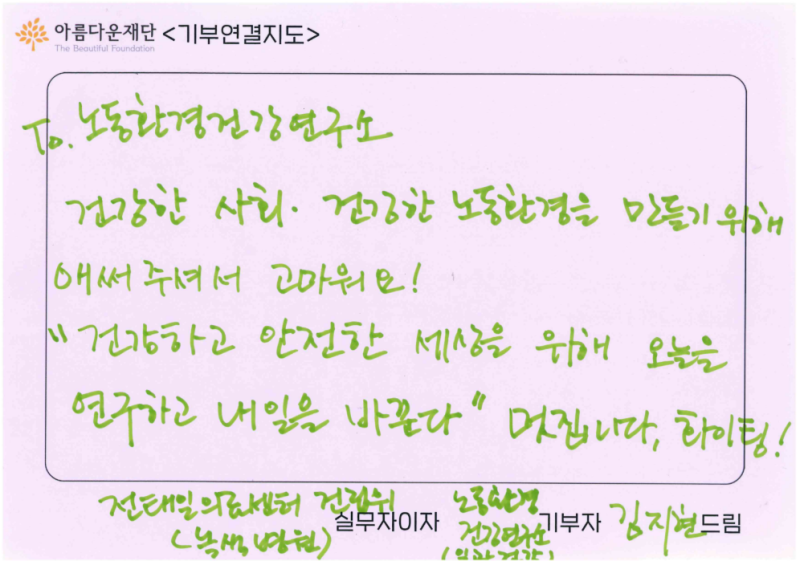 아름다운재단 <기부연결지도>
The Beautiful Foundation
To. 노동환경건강연구소
건강한 사회. 건강한 노동환경을 만들기 위해
애써 주셔서 고마워요!
"건강하고 안전한 세상을 위해 오늘을
연구하고 내일을 바꾼다" 멋집니다, 화이팅!
전태일의료센터 건립위
(녹색병원)
실무자이자
노동환경
건강연구소
(일환건강)
기부자 김지현드림